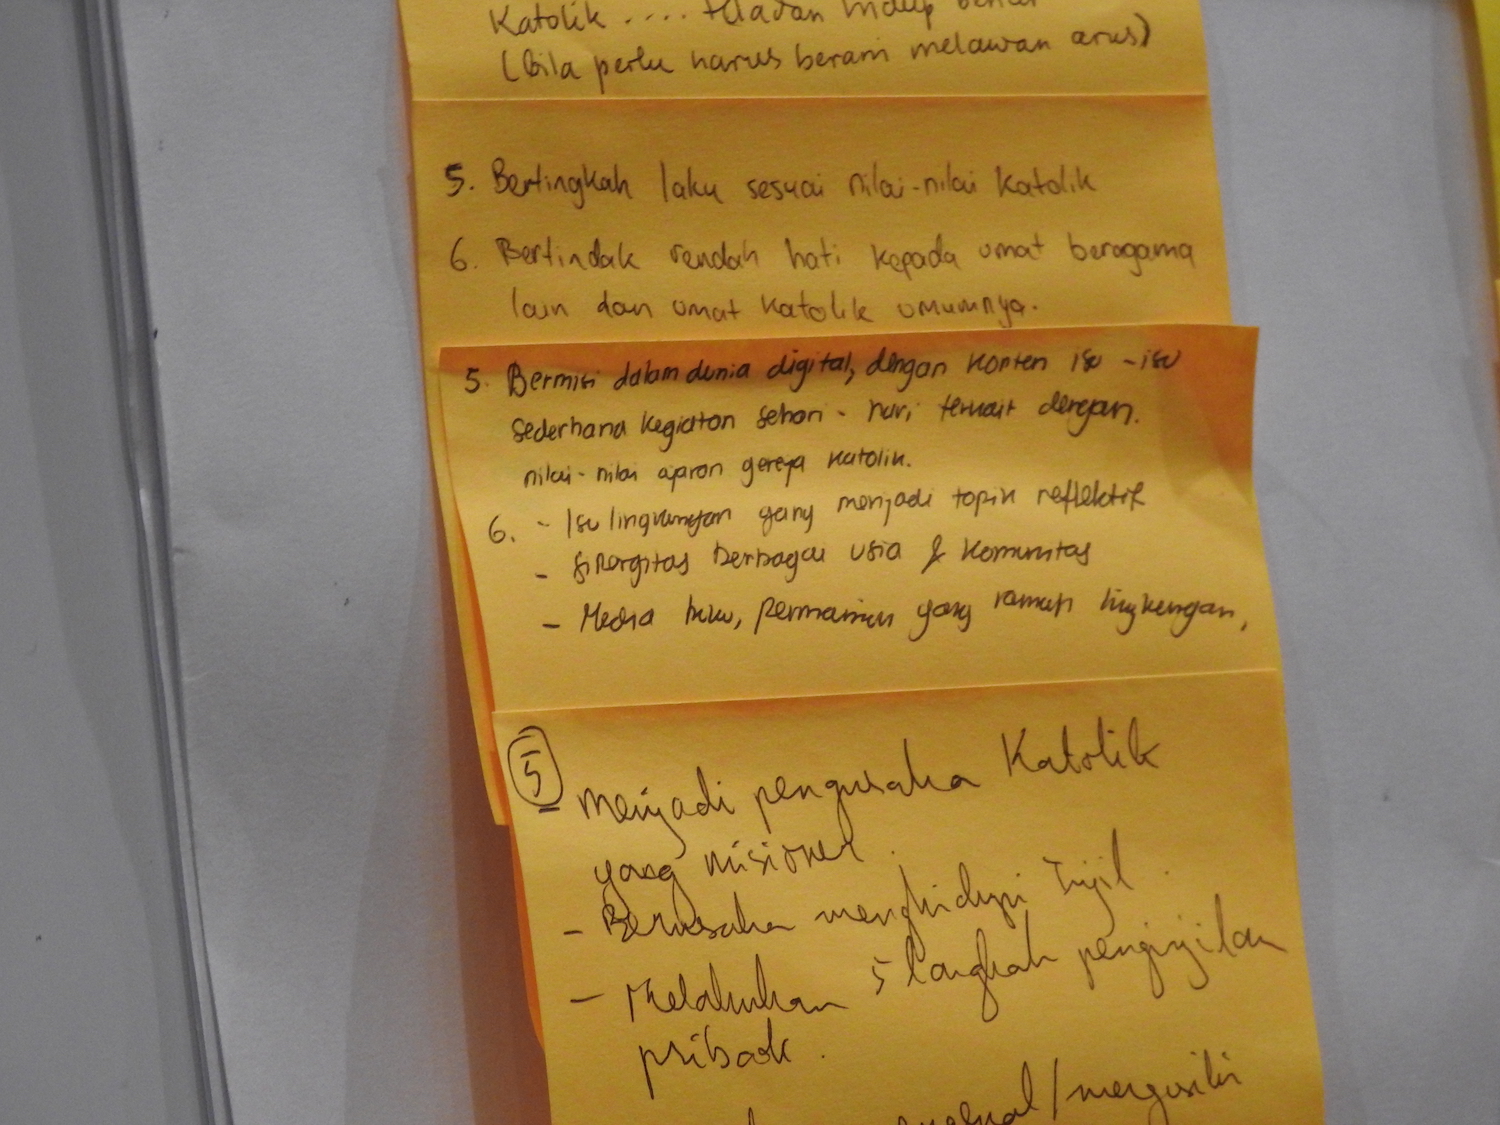 Katolik .... teladan hidup benar
(bila perlu harus berani melawan arus)
5. Bertingkah laku sesuai nilai-nilai Katolik
6. Bertindak rendah hati kepada umat beragama
lain dan umat Katolik umumnya.
5. Bermisi dalam dunia digital, dengan konten isu - isu
sederhana kegiatan sehari - hari terkait dengan.
nilai - nilai ajaran gereja Katolik.
6. - Isu lingkungan yang menjadi topik reflektif
- Sinergitas berbagai usia & komunitas
- Media buku, permainan yang ramah lingkungan,
5 Menjadi pengusaha Katolik
yang misioner.
- Berusaha menghidupi Injil.
- Melakukan 5 langkah penginjilan
pribadi.